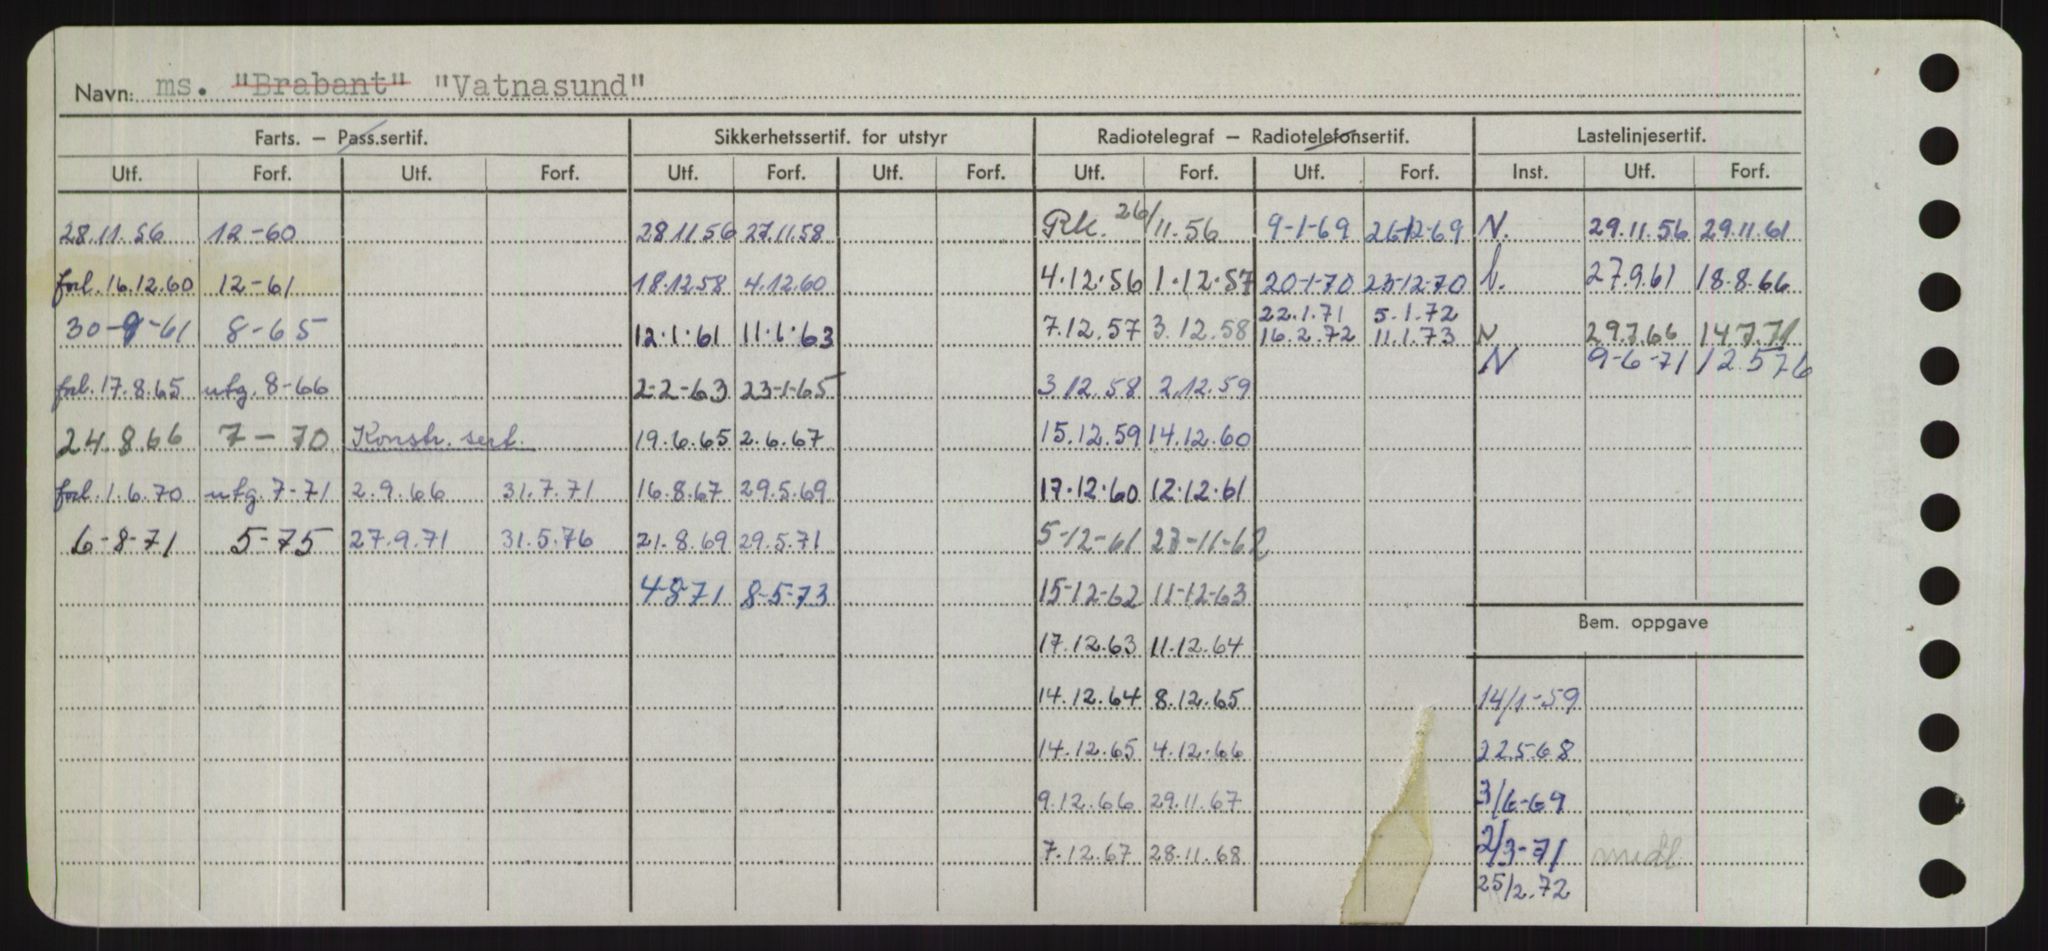 Navn: ms. "Brabant" "Vatnasund"
Farts. – Pass.sertif. Sikkerhetssertif. for utstyr Radiotelegraf – Radiotelefonsertif. Lastelinjesertif.
Utf. Forf. Utf. Forf. Utf. Forf. Utf. Forf. Utf. Forf. Utf. Forf. Inst. Utf. Forf.
28.11.56 12-60 28.11.56 27.11.58 Rk. 26/11.56 9-1-69 26-12-69 N. 29.11.56 29.11.61
forl. 16.12.60 12-61 18.12.58 4.12.60 4.12.56 1.12.57 20-1-70 23-12-70 27.9.61 18.8.66
22.1.71 5.1.72
30-9-61 8-65 12.1.61 11.1.63 7.12.57 3.12.58 16.2.72 11.1.73 N 29.7.66 14.7.71
N 9-6-71 12.5.76
forl. 17.8.65 utg. 8-66 2-2-63 23-1-65 3.12.58 2.12.59
24.8.66 7-70 Konstr. sert. 19.6.65 2.6.67 15.12.59 14.12.60
forl. 1.6.70 utg. 7-71 2.9.66 31.7.71 16.8.67 29.5.69 17.12.60 12.12.61
6-8-71 5-75 27.9.71 31.5.76 21.8.69 29.5.71 5-12-61 27-11-62
4-8-71 8-5-73 15-12-62 11-12-63
Bem. oppgave
17.12.63 11.12.64
14.12.64 8.12.65 14/1-59
14.12.65 4.12.66 22.5.68
9.12.66 29.11.67 3/6-69
7.12.67 28.11.68 2/3-71 midl
25/2.72